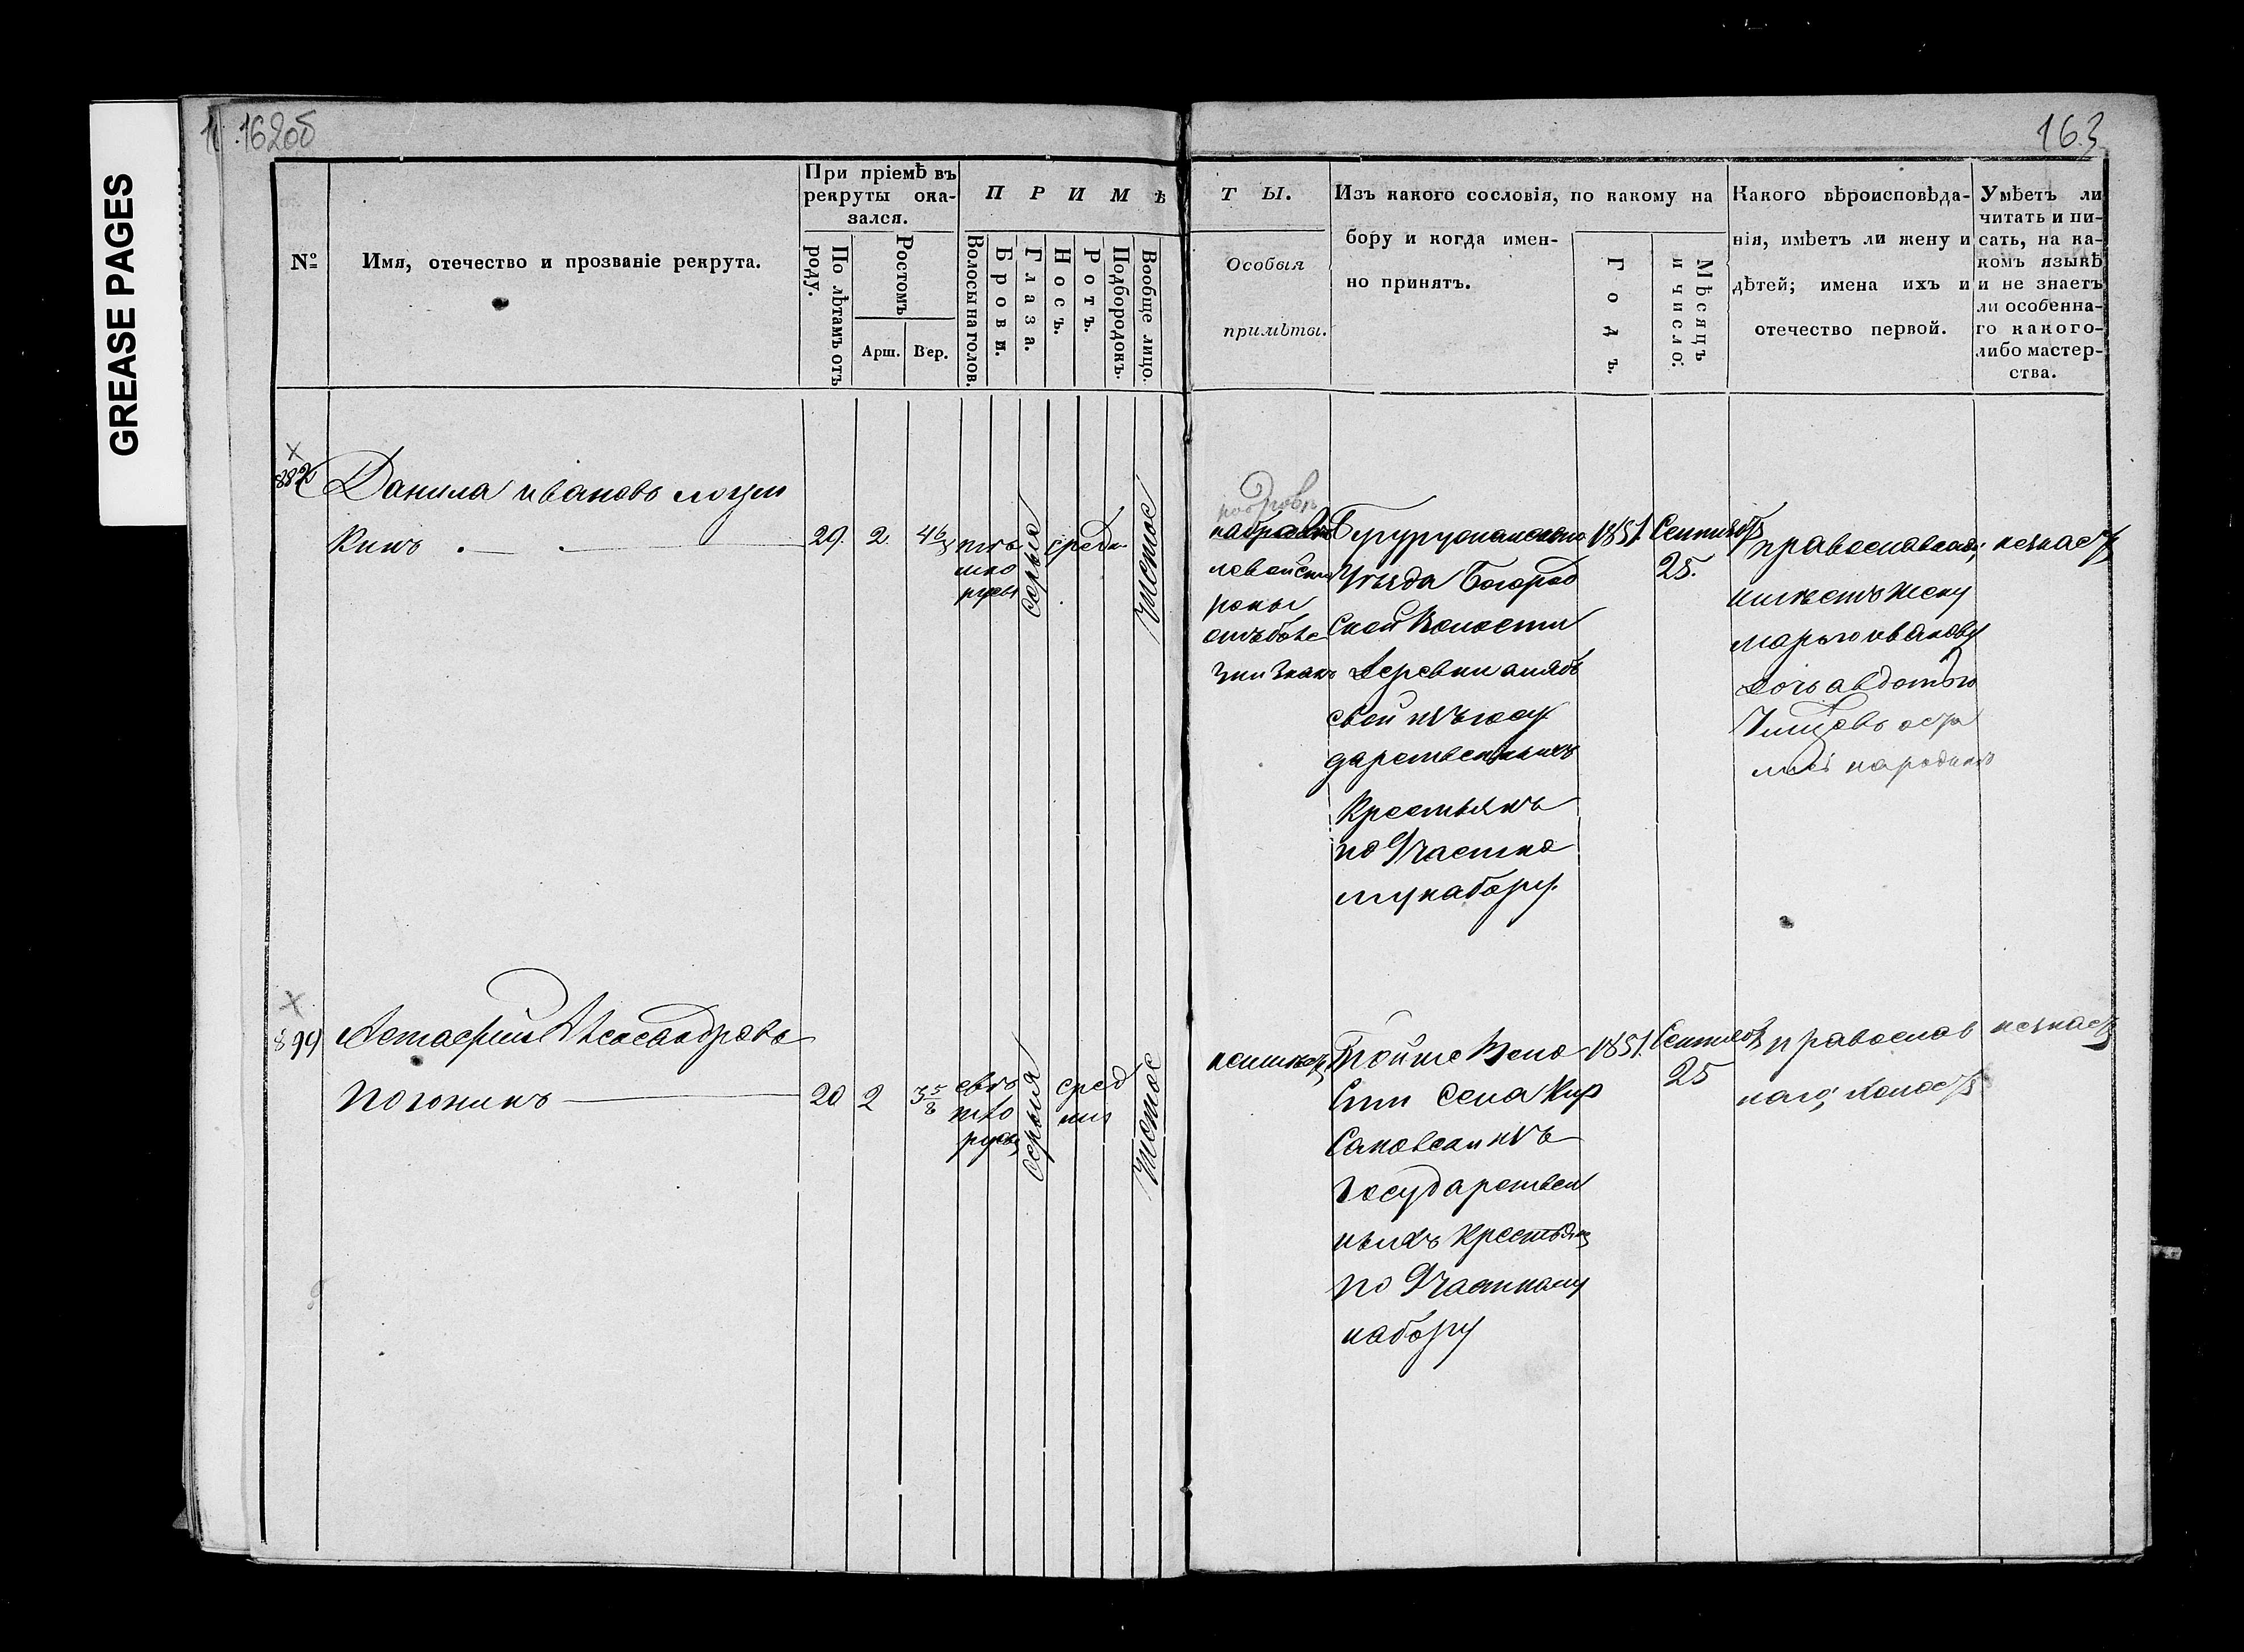 GREASE PAGES
162об
163
№
Имя, отечество и прозваніе рекрута.
При пріемѣ въ
рекруты ока-
зался.
По лѣтамъ отъ
роду.
Ростомъ
Арш.
Вер.
П Р И М Ѣ
Волосы на голов.
Брови.
Глаза.
Носъ.
Ротъ.
Подбородокъ.
Вообще лицо.
Т Ы.
Особыя
примѣты.
Изъ какого сословія, по какому на
бору и когда имен-
но принятъ.
Годъ.
Мѣсяцъ
и число.
Какого вѣроисповѣда-
нія, имѣетъ ли жену и
дѣтей; имена ихъ и
отечество первой.
Умѣетъ ли
читать и пи-
сать, на ка-
комъ языкѣ
и не знаетъ
ли особенна-
го какого-
либо мастер-
ства.
Данила ивановъ
кинъ
29.
2
серыя
средн
чистое
левой сто
роны
Бугурусланскаго
Уѣзда Богород
ской Волости
Деревни
государственныхъ
Крестьянъ
по Участко
му набору.
1851.
Сентября
25.
православнаго,
имѣетъ жену
марью иванову
дочь авдотью
на родинѣ
незнаетъ
899
Астафий Александровъ
Погонинъ
20
2
3 5/8
свѣ
тло
русы
серыя
сред
ния
чистое
неимѣетъ
Той же Воло
сти села Кир
сановска изъ
Государствен
ныхъ Крестьянъ
по Участкому
набору
1851.
Сентября
25
православ
наго, холостъ
незнаетъ